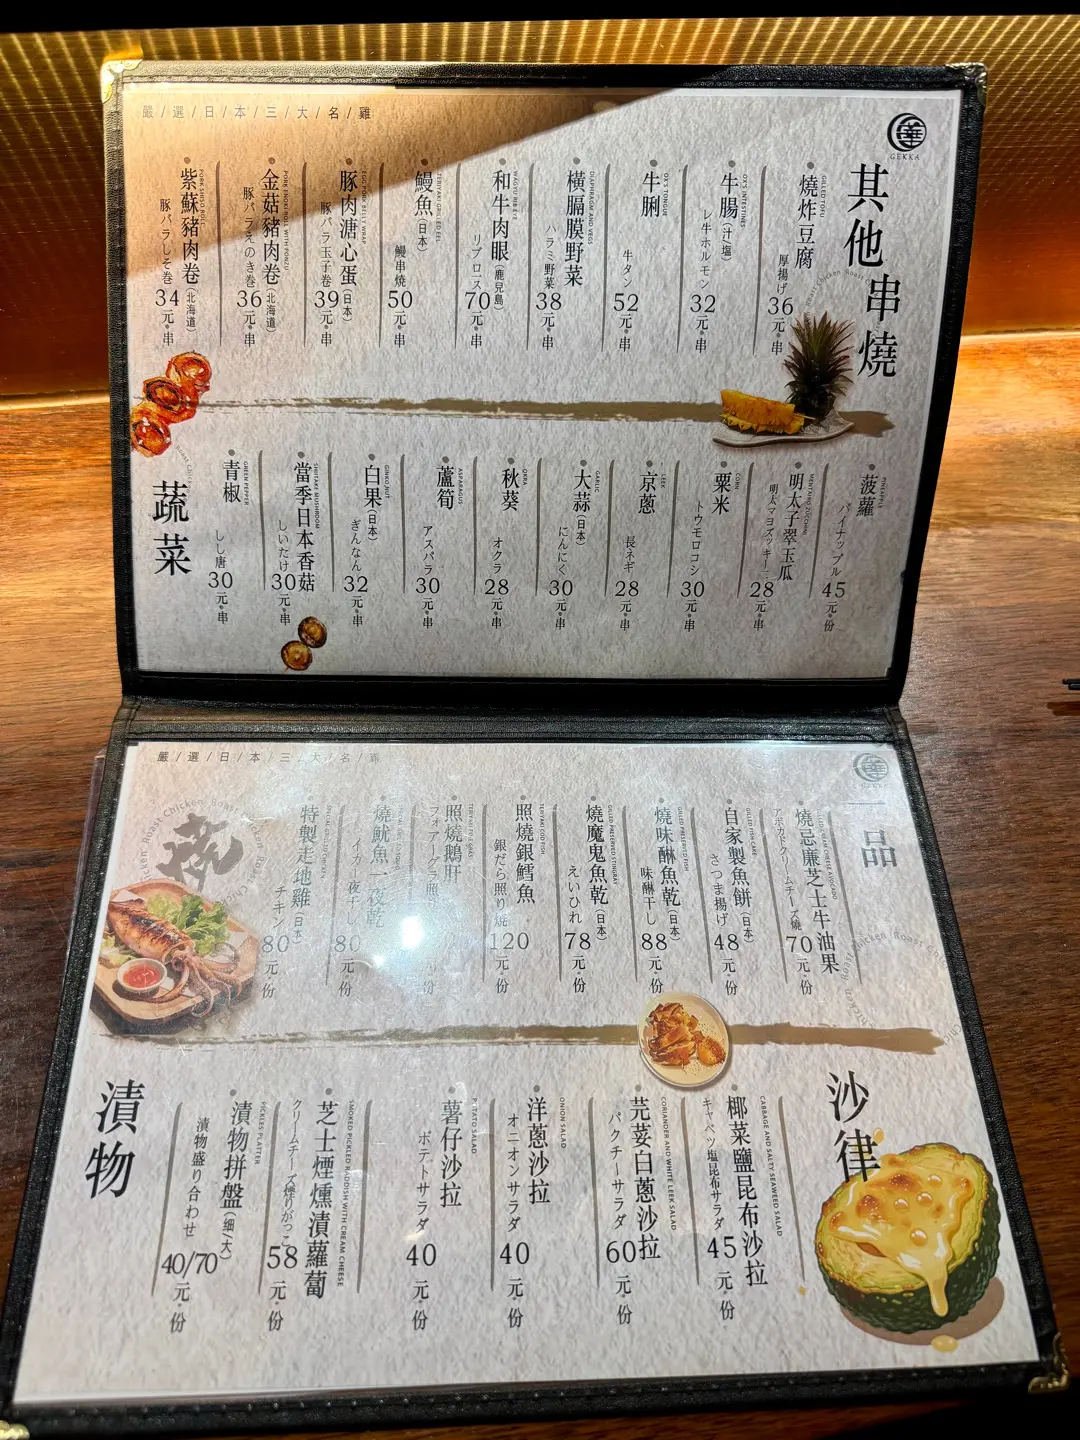 嚴/選/日/本/三/大/名/雞
華
GEKKA
其他串燒
GILLED TOFU
燒炸豆腐
厚揚げ
36元•串
OX'S INTESTINES
牛腸(汁/塩)
レ牛ホルモン
32元•串
OX'S TONGUE
牛脷
牛タン
52元•串
DIAPHRAGM AND VEGS
橫膈膜野菜
ハラミ野菜
38元•串
WAGYU RIB EYE
和牛肉眼(鹿兒島)
リブロース
70元•串
TERIYAKI GRILLED EEL
鰻魚(日本)
鰻串燒
50元•串
EGG PORK BELLY WRAP
豚肉溏心蛋(日本)
豚バラ玉子卷
39元•串
PORK ENOKI ROLL WITH PONZU
金菇豬肉卷(北海道)
豚バラえのき卷
36元•串
PORK SHISO ROLL
紫蘇豬肉卷(北海道)
豚バラしそ卷
34元•串
PINEAPPLE
菠蘿
パイナップル
45元•份
明太子翠玉瓜
明太マヨズッキーニ
28元•串
CORN
粟米
トウモロコシ
30元•串
LEEK
京蔥
長ネギ
28元•串
GARLIC
大蒜(日本)
にんにく
30元•串
OKRA
秋葵
オクラ
28元•串
ASPARAGUS
蘆筍
アスパラ
30元•串
GINKO NUT
白果(日本)
ぎんなん
32元•串
SHIITAKE MUSHROOM
當季日本香菇
しいたけ
30元•串
GREEN PEPPER
青椒
しし唐
30元•串
蔬菜
嚴/選/日/本/三/大/名/雞
華
GEKKA
一品
燒忌廉芝士牛油果
アボカドクリームチーズ燒
70元•份
GILLED FISH CAKE
自家製魚餅(日本)
さつま揚げ
48元•份
GILLED PRESERVED FISH
燒味醂魚乾(日本)
味醂干し
88元•份
GILLED PRESERVED STINGRAY
燒魔鬼魚乾(日本)
えいひれ
78元•份
TERIYAKI COD FISH
照燒銀鱈魚
銀だら照り燒
120元•份
照燒鵝肝
フォアーグラ照
份
燒魷魚一夜乾
イカ一夜干し
80元•份
特製走地雞(日本)
チキン
80元•份
燒
Chicken Roast Chicken
沙律
CABBAGE AND SALTY SEAWEED SALAD
椰菜鹽昆布沙拉
キャベツ塩昆布サラダ
45元•份
CORIANDER AND WHITE LEEK SALAD
芫荽白蔥沙拉
パクチーサラダ
60元•份
ONION SALAD
洋蔥沙拉
オニオンサラダ
40元•份
POTATO SALAD
薯仔沙拉
ポテトサラダ
40元•份
SMOKED PICKLED RADDISH WITH CREAM CHEESE
芝士煙燻漬蘿蔔
クリームチーズ燻りがっこ
58元•份
PICKLES PLATTER
漬物拼盤(細/大)
漬物盛り合わせ
40/70元•份
漬物